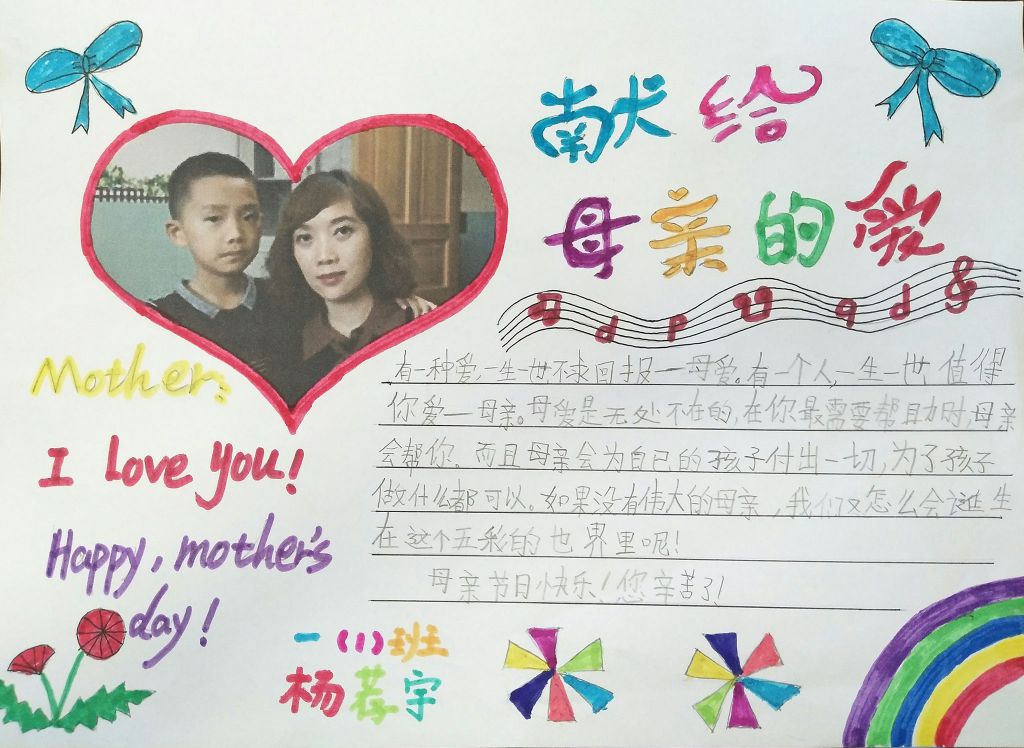 献给
母亲的爱
Mother:
I Love you!
Happy, mother's
day!
有一种爱,一生一世不求回报——母爱。有一个人,一生一世值得
你爱——母亲。母爱是无处不在的,在你最需要帮助时,母亲
会帮你。而且母亲会为自己的孩子付出一切,为了孩子
做什么都可以。如果没有伟大的母亲,我们又怎么会诞生
在这个五彩的世界里呢!
母亲节日快乐!您辛苦了!
一(1)班
杨荐宇